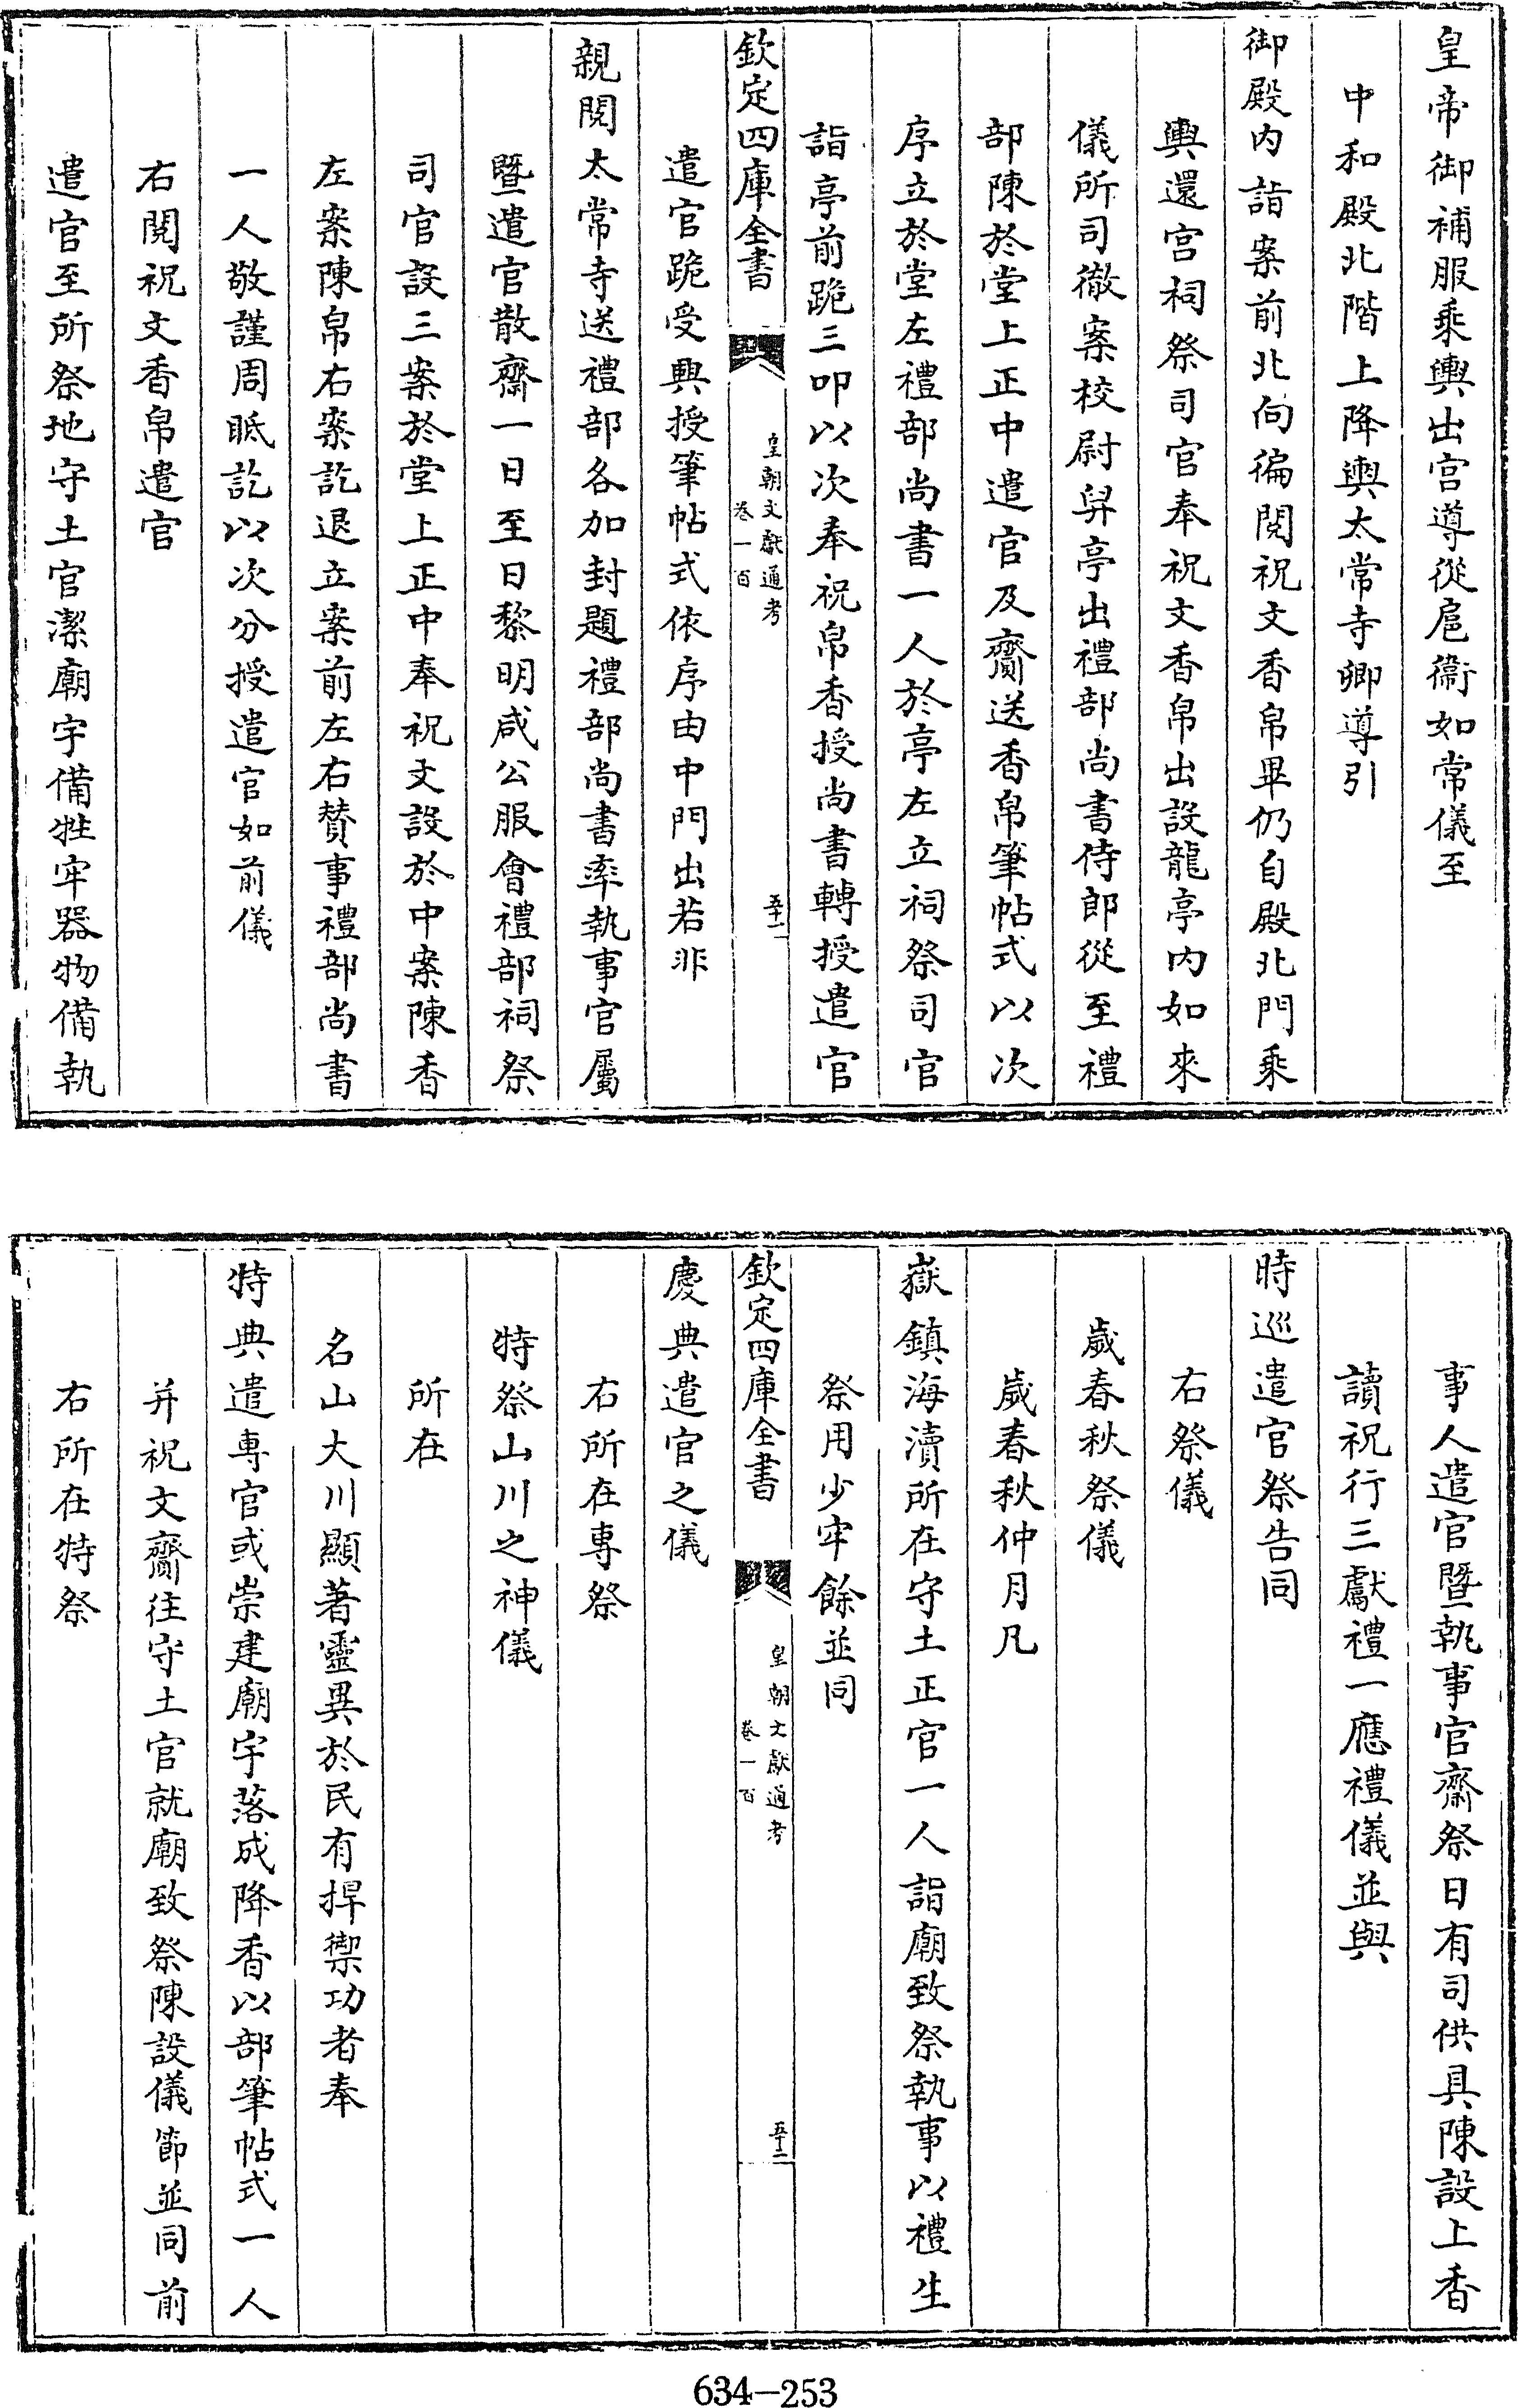 皇帝御補服乘輿出宮導從扈衞如常儀至
中和殿北階上降輿太常寺卿導引
御殿内詣案前北向徧閱祝文香帛畢仍自殿北門乘
輿還宮祠祭司官奉祝文香帛出設龍亭内如來
儀所司徹案校尉舁亭出禮部尚書侍郎從至禮
部陳於堂上正中遣官及齎送香帛筆帖式以次
序立於堂左禮部尚書一人於亭左立祠祭司官
詣亭前跪三叩以次奉祝帛香授尚書轉授遣官
欽定四庫全書
皇朝文獻通考
卷一百
五十一
遣官跪受興授筆帖式依序由中門出若非
親閱太常寺送禮部各加封題禮部尚書率執事官屬
曁遣官散齋一日至日黎明咸公服會禮部祠祭
司官設三案於堂上正中奉祝文設於中案陳香
左案陳帛右案訖退立案前左右贊事禮部尚書
一人敬謹周眡訖以次分授遣官如前儀
右閱祝文香帛遣官
遣官至所祭地守土官潔廟宇備牲牢器物備執
事人遣官曁執事官齋祭日有司供具陳設上香
讀祝行三獻禮一應禮儀並與
時巡遣官祭告同
右祭儀
歲春秋祭儀
歲春秋仲月凡
嶽鎮海瀆所在守土正官一人詣廟致祭執事以禮生
祭用少牢餘並同
欽定四庫全書
皇朝文獻通考
卷一百
五十二
慶典遣官之儀
右所在專祭
特祭山川之神儀
所在
名山大川顯著靈異於民有捍禦功者奉
特典遣專官或崇建廟宇落成降香以部筆帖式一人
并祝文齎往守土官就廟致祭陳設儀節並同前
右所在特祭
634-253